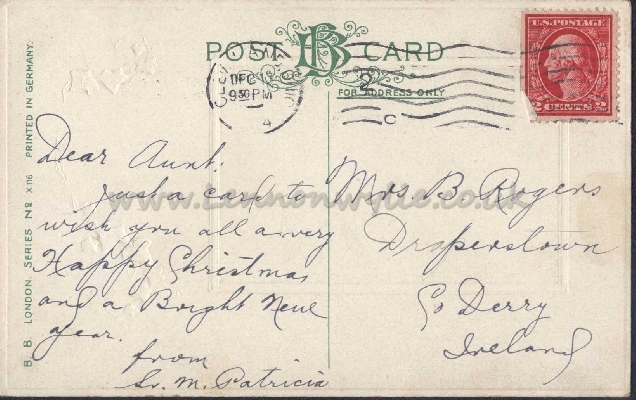 POST BB CARD
FOR ADDRESS ONLY
U.S. POSTAGE
2 CENTS 2
DEC
930 PM
C
B. B. LONDON. SERIES No X116 PRINTED IN GERMANY.
www.Lennonwylie.co.uk
Dear Aunt.
Just a card to
wish you all a very
Happy Christmas
and a Bright New
year.
from
Sr. M. Patricia
Mrs B Rogers
Draperstown
Co Derry
Ireland